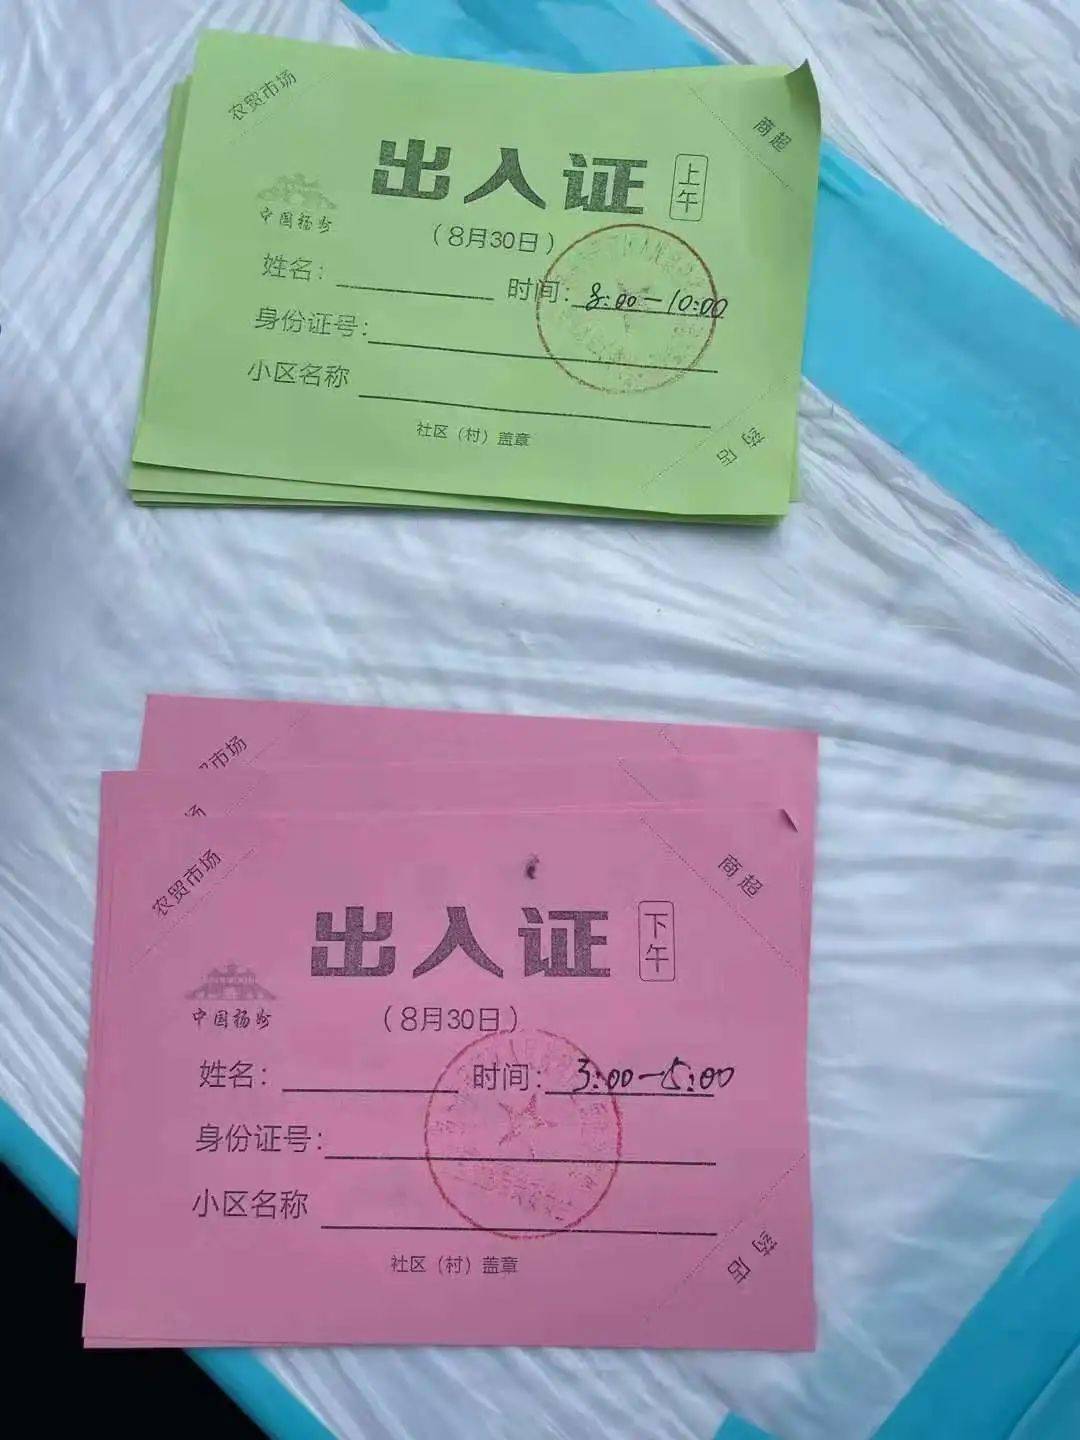 农贸市场
商超
出入证 上午
中国扬州
(8月30日)
姓名: 时间: 8:00—10:00
身份证号:
小区名称
社区(村)盖章
药店
市场
场
农贸市场
商超
出入证 下午
中国扬州
(8月30日)
姓名: 时间: 3:00—5:00
身份证号:
小区名称
社区(村)盖章
药店